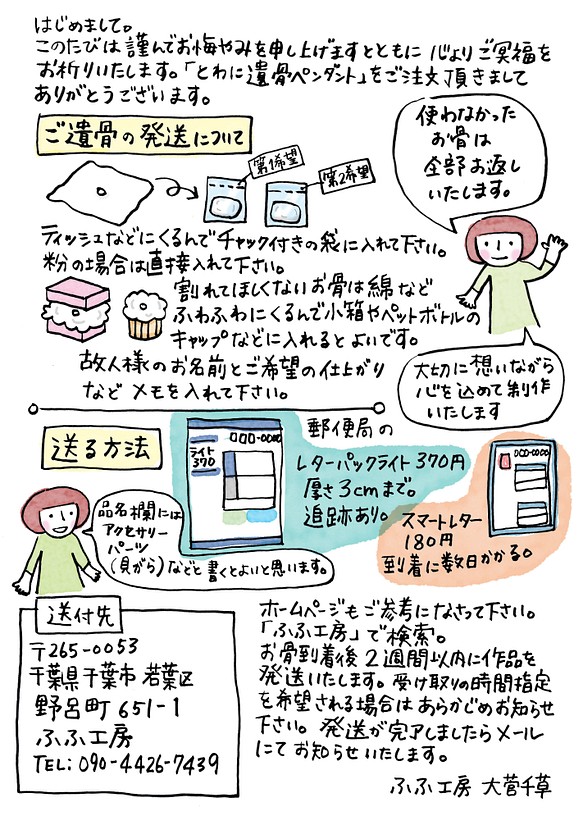 はじめまして。
このたびは謹んでお悔やみを申し上げますとともに心よりご冥福を
お祈りいたします。「とわに遺骨ペンダント」をご注文頂きまして
ありがとうございます。
ご遺骨の発送について
使わなかった
お骨は
全部お返し
いたします。
第1希望
第2希望
ティッシュなどにくるんでチャック付きの袋に入れて下さい。
粉の場合は直接入れて下さい。
割れてほしくないお骨は綿など
ふわふわにくるんで小箱やペットボトルの
キャップなどに入れるとよいです。
故人様のお名前とご希望の仕上がり
などメモを入れて下さい。
大切に想いながら
心を込めて制作
いたします
送る方法
郵便局の
ライト
370
000-0000
レターパックライト370円
厚さ3cmまで。
追跡あり。
000-0000
スマートレター
180円
到着に数日かかる。
品名欄には
アクセサリー
パーツ
(貝がら)などと書くとよいと思います。
送付先
〒265-0053
千葉県千葉市若葉区
野呂町651-1
ふふ工房
TEL:090-4426-7439
ホームページもご参考になさって下さい。
「ふふ工房」で検索。
お骨到着後2週間以内に作品を
発送いたします。受け取りの時間指定
を希望される場合はあらかじめお知らせ
下さい。発送が完了しましたらメール
にてお知らせいたします。
ふふ工房 大菅千草